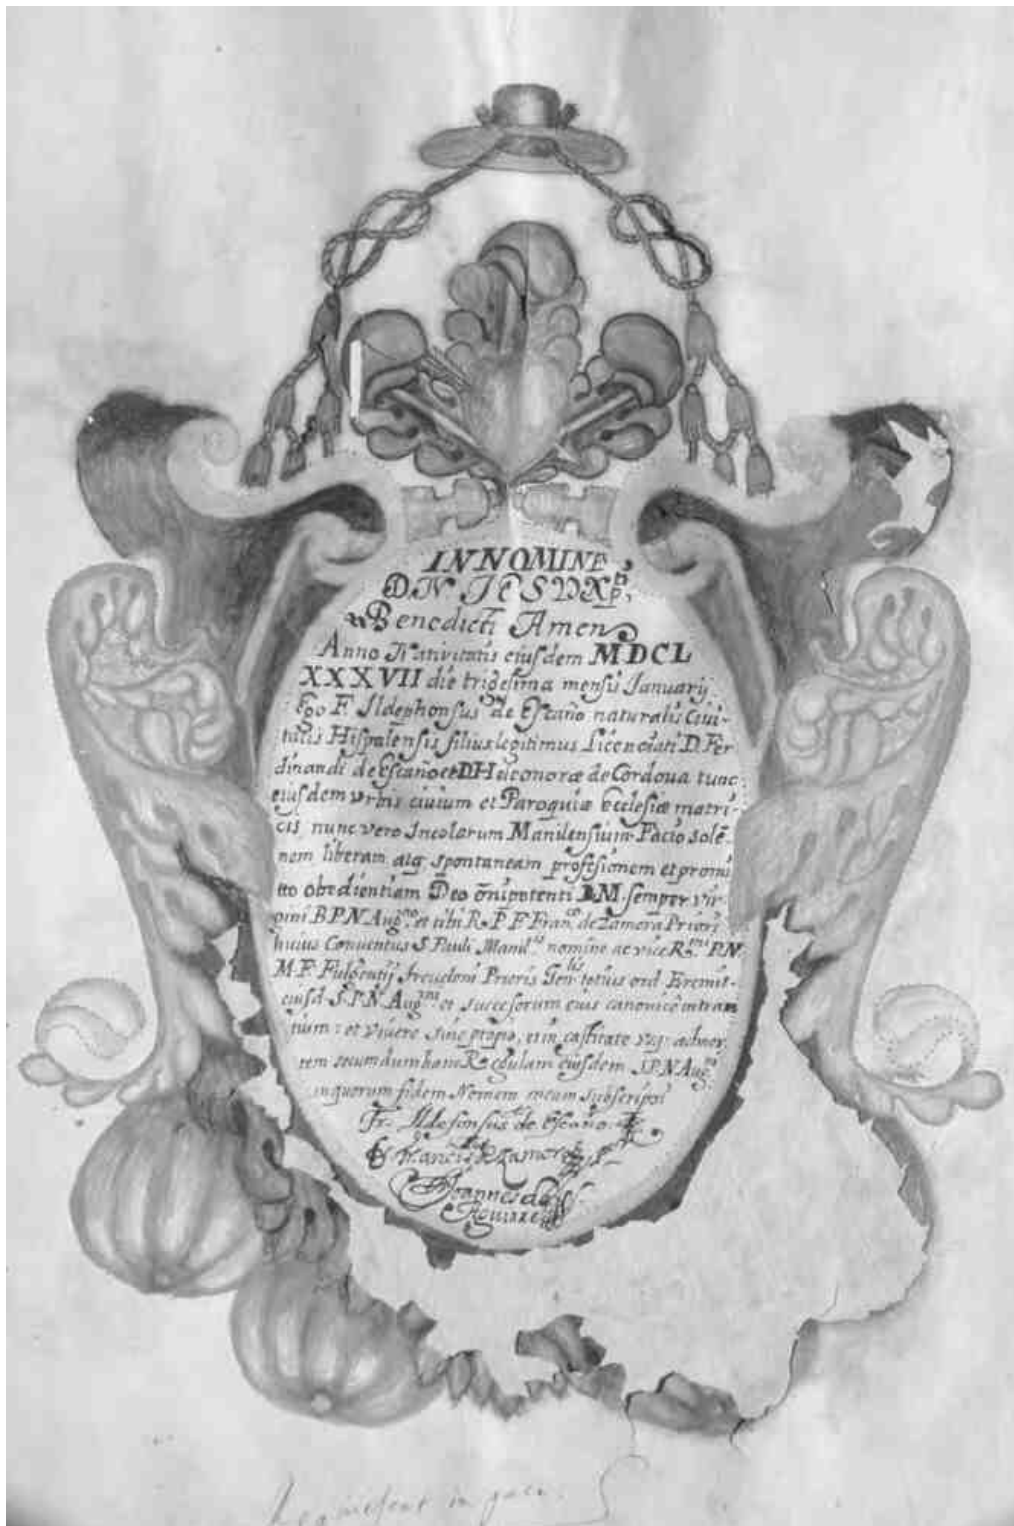 IN NOMINE
D.N JESV Xp̄i,
Benedicti Amen
Anno Nativitatis eiusdem MDCL
XXXVII die trigesima mensis Januarij
Ego F. Ildephonsus de Escaño naturalis Civi-
tatis Hispalensis filius legitimus Licenciati D. Fer
dinandi de escaño et D Heleonoræ de Cordova tunc
eiusdem vrbis civium et Paroquiæ ecclesiæ matri-
cis nunc vero Incolarum Manilensium. Facio solē-
nem liberam atq spontaneam profesionem et promi
tto obedientiam Deo ōnipotenti B.M. semper vir-
gini B.P.N Augno et tibi R. P. F. Franco de Zamora Priori
huius Conventus S. Pauli Manilæ nomine ac vice Rmi P.N.
M.F. Fulgentij Prioris Genlis totius ord Eremit-
eiusd. S.P.N. Augni et succesorum eius canonicè intran
tium: et vivere sine propio, et in castitate vsq. ad mor
tem secundum hanc Regulam eiusdem S.P.N Augni
inquorum fidem Nomem meum subscripsi
Fr. Ildefonsus de escaño
Fr Francisco de Zamora
Joannes de
Aguirre
Requiescat in pace.